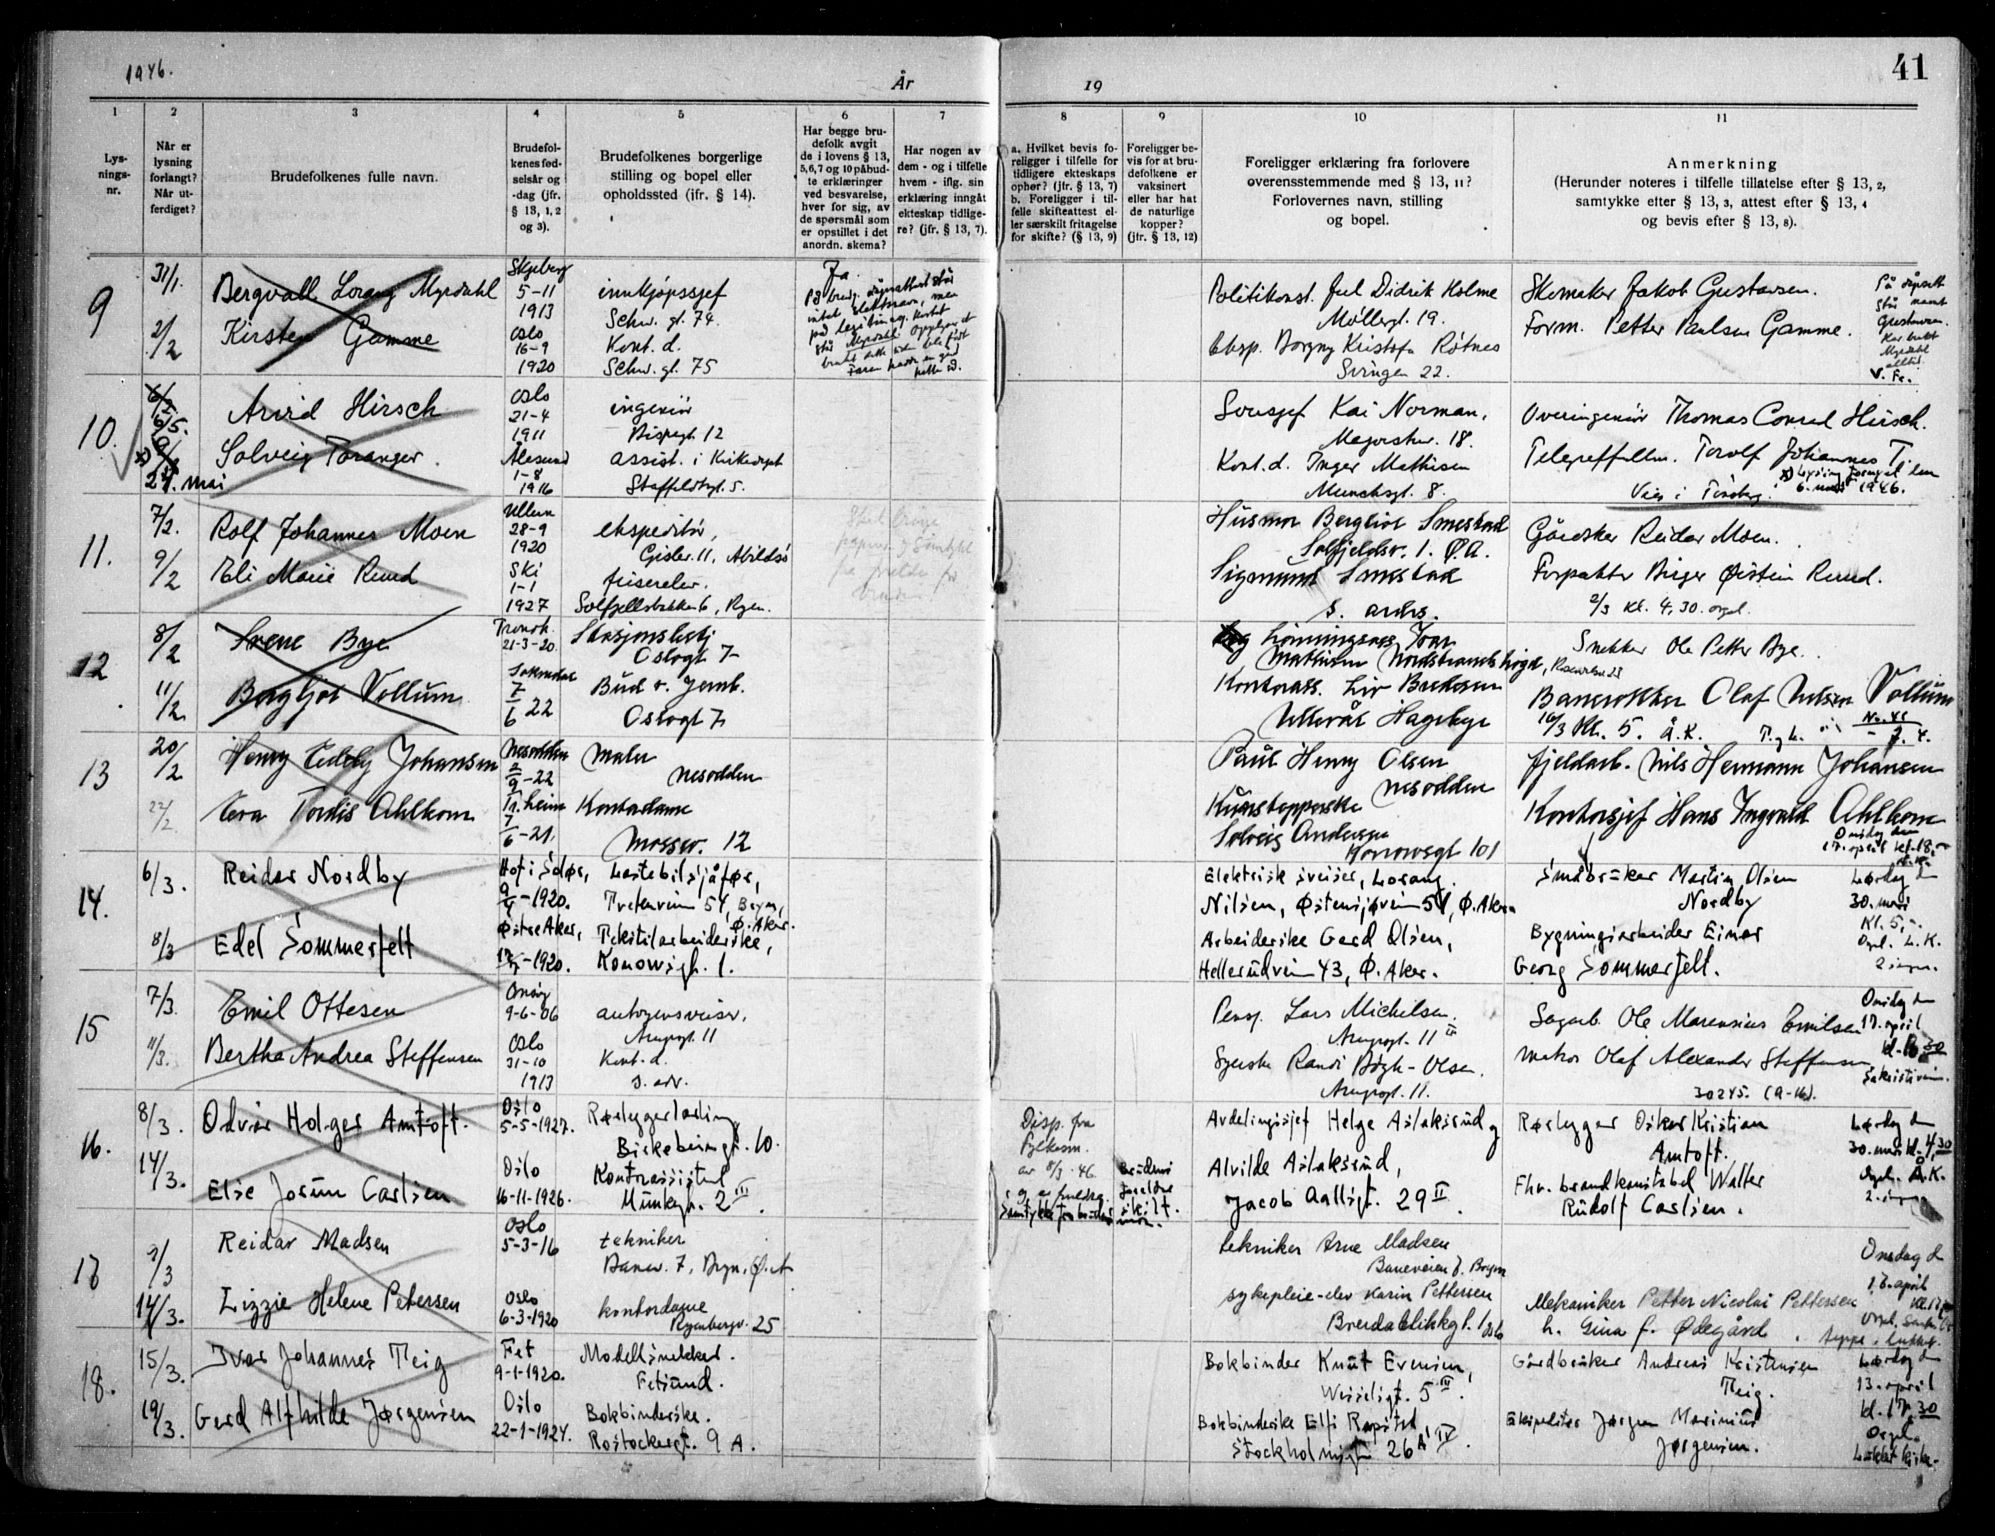 1946.
År
19
41
1
2
3
4
5
6
7
8
9
10
11
Lys-
nings-
nr.
Når er
lysning
forlangt?
Når ut-
ferdiget?
Brudefolkenes fulle navn.
Brudefol-
kenes fød-
selsår og
-dag (jfr.
§ 13, 1, 2
og 3).
Brudefolkenes borgerlige
stilling og bopel eller
opholdssted (ifr. § 14).
Har begge bru-
defolk avgit
de i lovens § 13,
5, 6, 7 og 10 påbud-
te erklæringer
ved besvarelse,
hver for sig, av
de spørsmål som
er opstillet i det
anordn. skema?
Har nogen av
dem - og i tilfelle
hvem - iflg. sin
erklæring inngått
ekteskap tidlige-
re? (jfr. § 13, 7).
a. Hvilket bevis fo-
religger i tilfelle for
tidligere ekteskaps
ophør? (jfr. § 13, 7)
b. Foreligger i til-
felle skifteattest el-
ler særskilt fritagelse
for skifte? (§ 13, 9)
Foreligger be-
vis for at bru-
defolkene er
vaksinert
eller har hat
de naturlige
kopper?
(jfr. § 13, 12)
Foreligger erklæring fra forlovere
overensstemmende med § 13, 11?
Forlovernes navn, stilling
og bopel.
Anmerkning
(Herunder noteres i tilfelle tillatelse efter § 13, 2,
samtykke efter § 13, 3, attest efter § 13, 4
og bevis efter § 13, 8).
9
31/1.
2/2
Bergvall Lorang Myrdahl
Kirsten Gamme
Skjeberg
5-11
1913
Oslo
16-9
1920
innkjøpssjef
Schw. gt. 74.
Kont. d.
Schw. gt. 75
Ja.
Politikonst. Jul Didrik Holme
Møllergt. 19.
Borgny Kristofa Røtnes
Svingen 22.
Skomaker Jakob Gustavsen.
Form. Petter Paulsen Gamme.
På dåpsatt
står navnet
Gustavsen.
Har brukt
Myrdahl
alltid.
V. Fr.
10.
6/5.
21. mai
Arvid Hirsch
Solveig Toranger.
Oslo
21-4
1911
Ålesund
1-8
1916
ingeniør
Bispegt. 12
assist. i Kirkedept
Staffeldtsgt. 5.
Kai Norman,
Majorstuv. 18.
Kont. d. Inger Mathisen
Munchsgt. 8.
Overingeniør Thomas Conrad Hirsch.
Torolf Johannes T.
6. mars 1946.
11.
7/2.
9/2
Rolf Johannes Moen
Eli Marie Ruud
Ullern
28-9
1920
Ski
1-1
1927
ekspeditør,
Gisler. 11, Abildsø
friserelev.
Solfjellsbakken 6, Ryen.
Husmor Bergliot Smestad
Solfjeldsv. 1. Ø.A.
Sigmund Smestad
s. adrs.
Gårdsker Reidar Moen.
Forpakter Birger Øistein Ruud.
2/3 kl. 4,30. orgel.
12
8/2
11/2
Svene Bye
Bergljot Vollum
21-3-20.
7/6 22
Stasjonsbetj
Oslogt 7
Bud v. Jernb.
Oslogt 7
Mathisen Nordstrandshøgd,
Kontorass. Liv Brekesen
Ullevål Hageby
Snekker Ole Petter Bye.
Banevokter Olaf Nilsen Vollum
16/3 Kl. 5. Å.K.
13
20/2
22/2
Henry Teddy Johansen
Vera Tordis Ahlkorn
Nesodden
2/9-22
Tr.heim
7/6-21.
Maler
Nesodden
Kontordame
Mossev. 12
Paul Henry Olsen
Nesodden
Kunststopperske
Solveig Andersen
Konowsgt 101
Fjeldarb. Nils Hermann Johansen
Kontorsjef Hans Ingvald Ahlkorn
Onsdag den
17. april kl. 18,-
14.
6/3.
8/3
Reidar Nordby
Edel Sommerfelt
Hof i Solør,
9/4-1920.
Østre Aker,
-1920.
Lastebilsjåfør,
Tvetenveien 54, Bryn,
Ø. Aker.
Tekstilarbeiderske,
Konowsgt. 1.
Elektrisk sveiser, Lorang
Nilsen, Østensjøveien 54, Ø. Aker
Arbeiderske Gerd Olsen,
Hellerudveien 43, Ø. Aker.
Småbruker Martin Olsen
Nordby
Bygningsarbeider Einar
Georg Sommerfelt.
Lørdag d
30. mars
Kl. 5,-.
Orgl. L.K.
15
7/3.
11/3.
Emil Ottesen
Bertha Andrea Steffensen
Onsøy
9-6-06
Oslo
31-10
1913
autogensveiser.
Arupsgt. 11
Kont. d.
s. adr.
Pensj. Lars Michelsen.
Arupsgt. 11 III
Syerske Randi Bøgh-Olsen.
Arupsgt. 11.
Sagarb. Ole Marensius Emilsen
Maskor Olaf Alexander Steffensen
30245. (9-16).
Onsdag d
17. april
Sakristiveien.
16.
8/3.
14/3.
Odvar Holger Amtoft.
Else Jorun Carlsen
Oslo
5-5-1927.
Oslo
16-11-1926.
Rørleggerlærling
Birkebeinergt. 10.
Kontorassistent
Munkegt. 2 III.
Disp. fra
Fylkesm.
av 8/3-46.
Avdelingssjef Helge Aslaksrud og
Alvilde Aslaksrud,
Jacob Aallsgt. 29 II.
Rørlegger Oskar Kristian
Amtoft.
Fhv. brandkonstabel Walter
Rudolf Carlsen.
Lørdag d
30. mars kl. 4,30
Orgel. Å.K.
17
9/3
14/3.
Reidar Madsen
Lizzie Helene Petersen
Oslo
5-3-16
Oslo
6-3-1920
tekniker
Banev. 7, Bryn, Ø.A
kontordame
Ryenbergv. 25
tekniker Arne Madsen
Baneveien 7. Bryn
sykepleie-elev Karin Pettersen
Breidablikkgt. 1
Mekaniker Petter Nicolai Pettersen
h. Gina f. Ødegård
Onsdag d
17. april
18.
15/3.
19/3.
Ivar Johannes Teig
Gerd Alfhilde Jørgensen
Fet
9-1-1920.
Oslo
22-1-1924.
Modellsnekker.
Fetsund.
Bokbinderske.
Rostockergt. 9 A.
Bokbinder Knut Evensen,
Wesselsgt. 5 IV.
Bokbinderske Elsi Rapstad,
Stockholmsgt 26 A IV.
Gårdbruker Andreas Kristensen
Teig.
Ekspeditør Jørgen Marinius
Jørgensen.
Lørdag d
13. april
kl. 17,30
Orgel.
Lukket kirke.